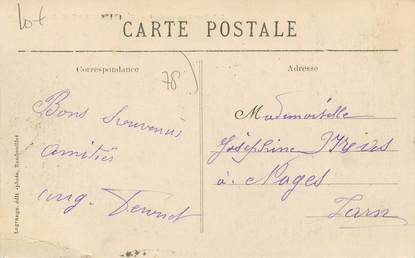 Lot
CARTE POSTALE
Correspondance
78
Adresse
Bons Souvenirs
amitiés
Aug.
Mademoiselle
Joséphine
à Nages
Tarn
Lagrange, édit.-photo, Rambouillet